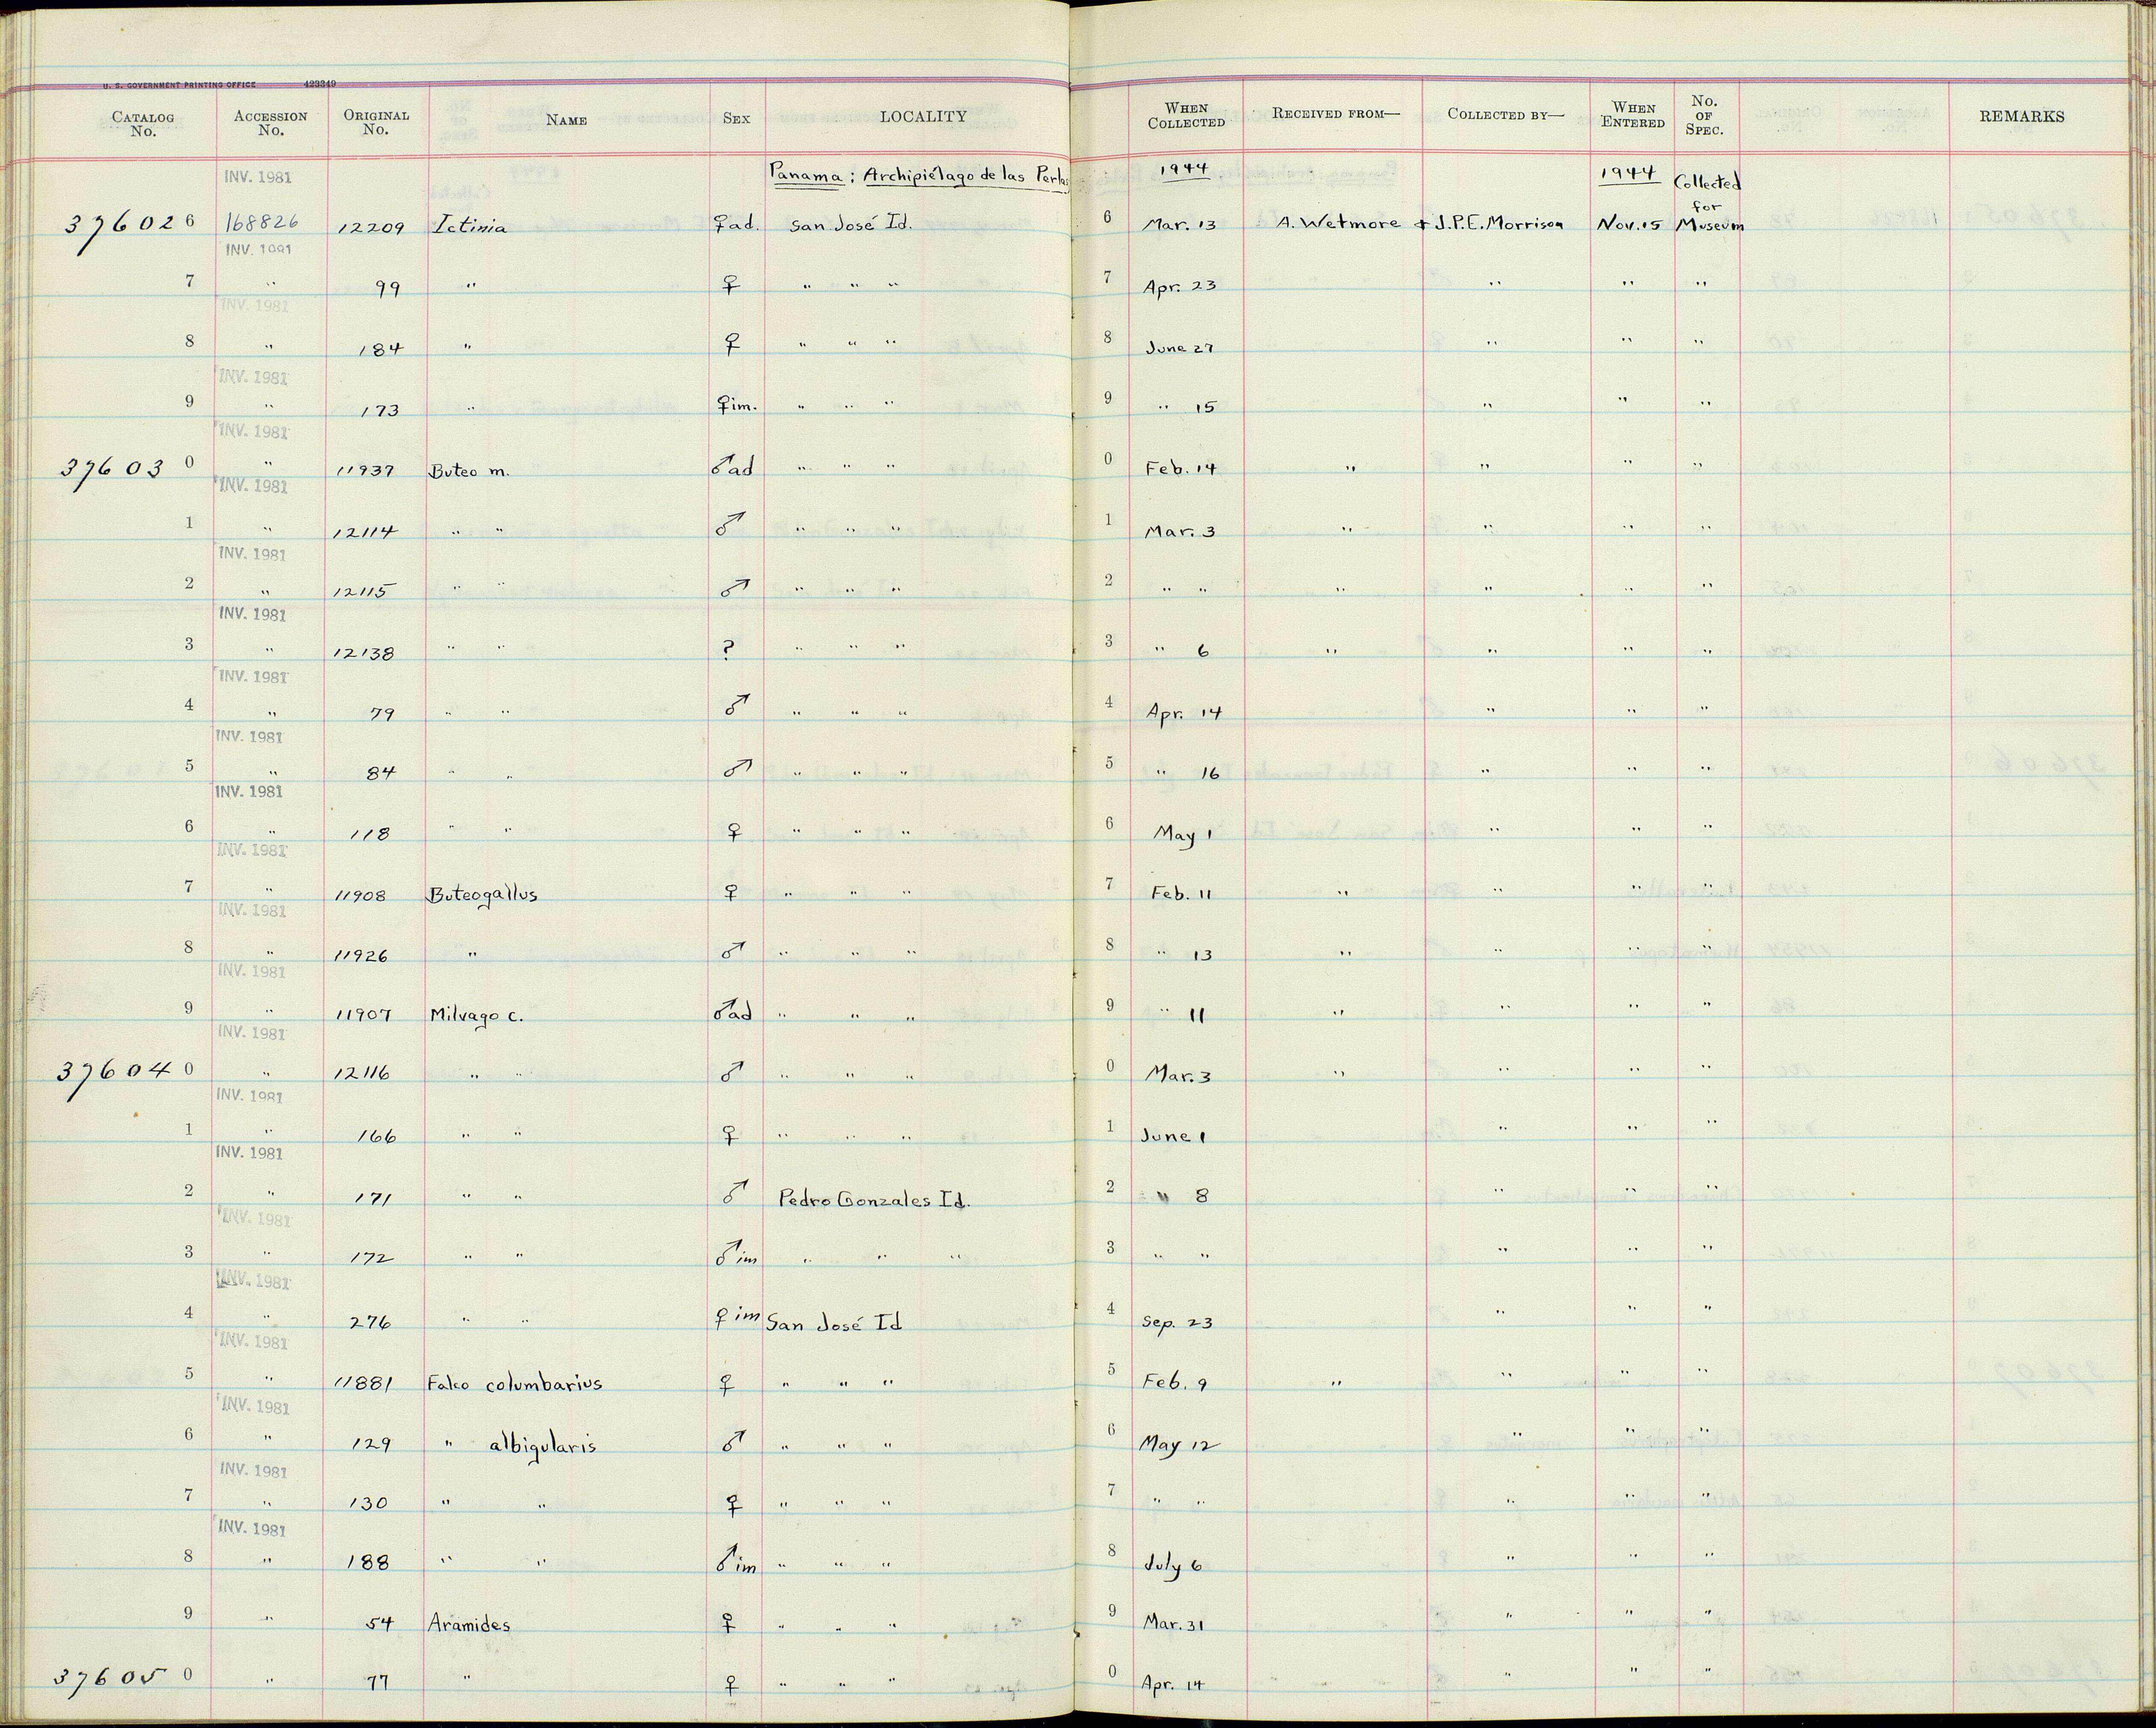 U. S. GOVERNMENT PRINTING OFFICE 423349
CATALOG No. ACCESSION No. ORIGINAL No. NAME SEX LOCALITY WHEN COLLECTED RECEIVED FROM— COLLECTED BY— WHEN ENTERED No. OF SPEC. REMARKS
INV. 1981 Panama; Archipiélago de las Perlas 1944 1944 Collected for
376026 168826 12209 Ictinia ♀ad. San José Id. 6 Mar. 13 A. Wetmore + J.P.E. Morrison Nov. 15 Museum
INV. 1981
7 " 99 " ♀ " " " 7 Apr. 23 " " "
INV. 1981
8 " 184 " ♀ " " " 8 June 27 " " "
INV. 1981
9 " 173 " ♀im. " " " 9 " 15 " " "
INV. 1981
376030 " 11937 Buteo m. ♂ad " " " 0 Feb. 14 " " " "
INV. 1981
1 " 12114 " " ♂ " " " 1 Mar. 3 " " " "
INV. 1981
2 " 12115 " " ♂ " " " 2 " " " " " "
INV. 1981
3 " 12138 " " ? " " " 3 " 6 " " " "
INV. 1981
4 " 79 " " ♂ " " " 4 Apr. 14 " " "
INV. 1981
5 " 84 " " ♂ " " " 5 " 16 " " "
INV. 1981
6 " 118 " " ♀ " " " 6 May 1 " " "
INV. 1981
7 " 11908 Buteogallus ♀ " " " 7 Feb. 11 " " " "
INV. 1981
8 " 11926 " ♂ " " " 8 " 13 " " " "
INV. 1981
9 " 11907 Milvago c. ♂ad " " " 9 " 11 " " " "
INV. 1981
376040 " 12116 " " ♂ " " " 0 Mar. 3 " " " "
INV. 1981
1 " 166 " " ♀ " " " 1 June 1 " " "
INV. 1981
2 " 171 " " ♂ Pedro Gonzales Id. 2 " 8 " " "
INV. 1981
3 " 172 " " ♂im " " " 3 " " " " "
INV. 1981
4 " 276 " " ♀im San José Id 4 Sep. 23 " " "
INV. 1981
5 " 11881 Falco columbarius ♀ " " " 5 Feb. 9 " " " "
INV. 1981
6 " 129 " albigularis ♂ " " " 6 May 12 " " "
INV. 1981
7 " 130 " " ♀ " " " 7 " " " " "
INV. 1981
8 " 188 " " ♂im " " " 8 July 6 " " "
9 " 54 Aramides ♀ " " " 9 Mar. 31 " " "
376050 " 77 " ♀ " " " 0 Apr. 14 " " "